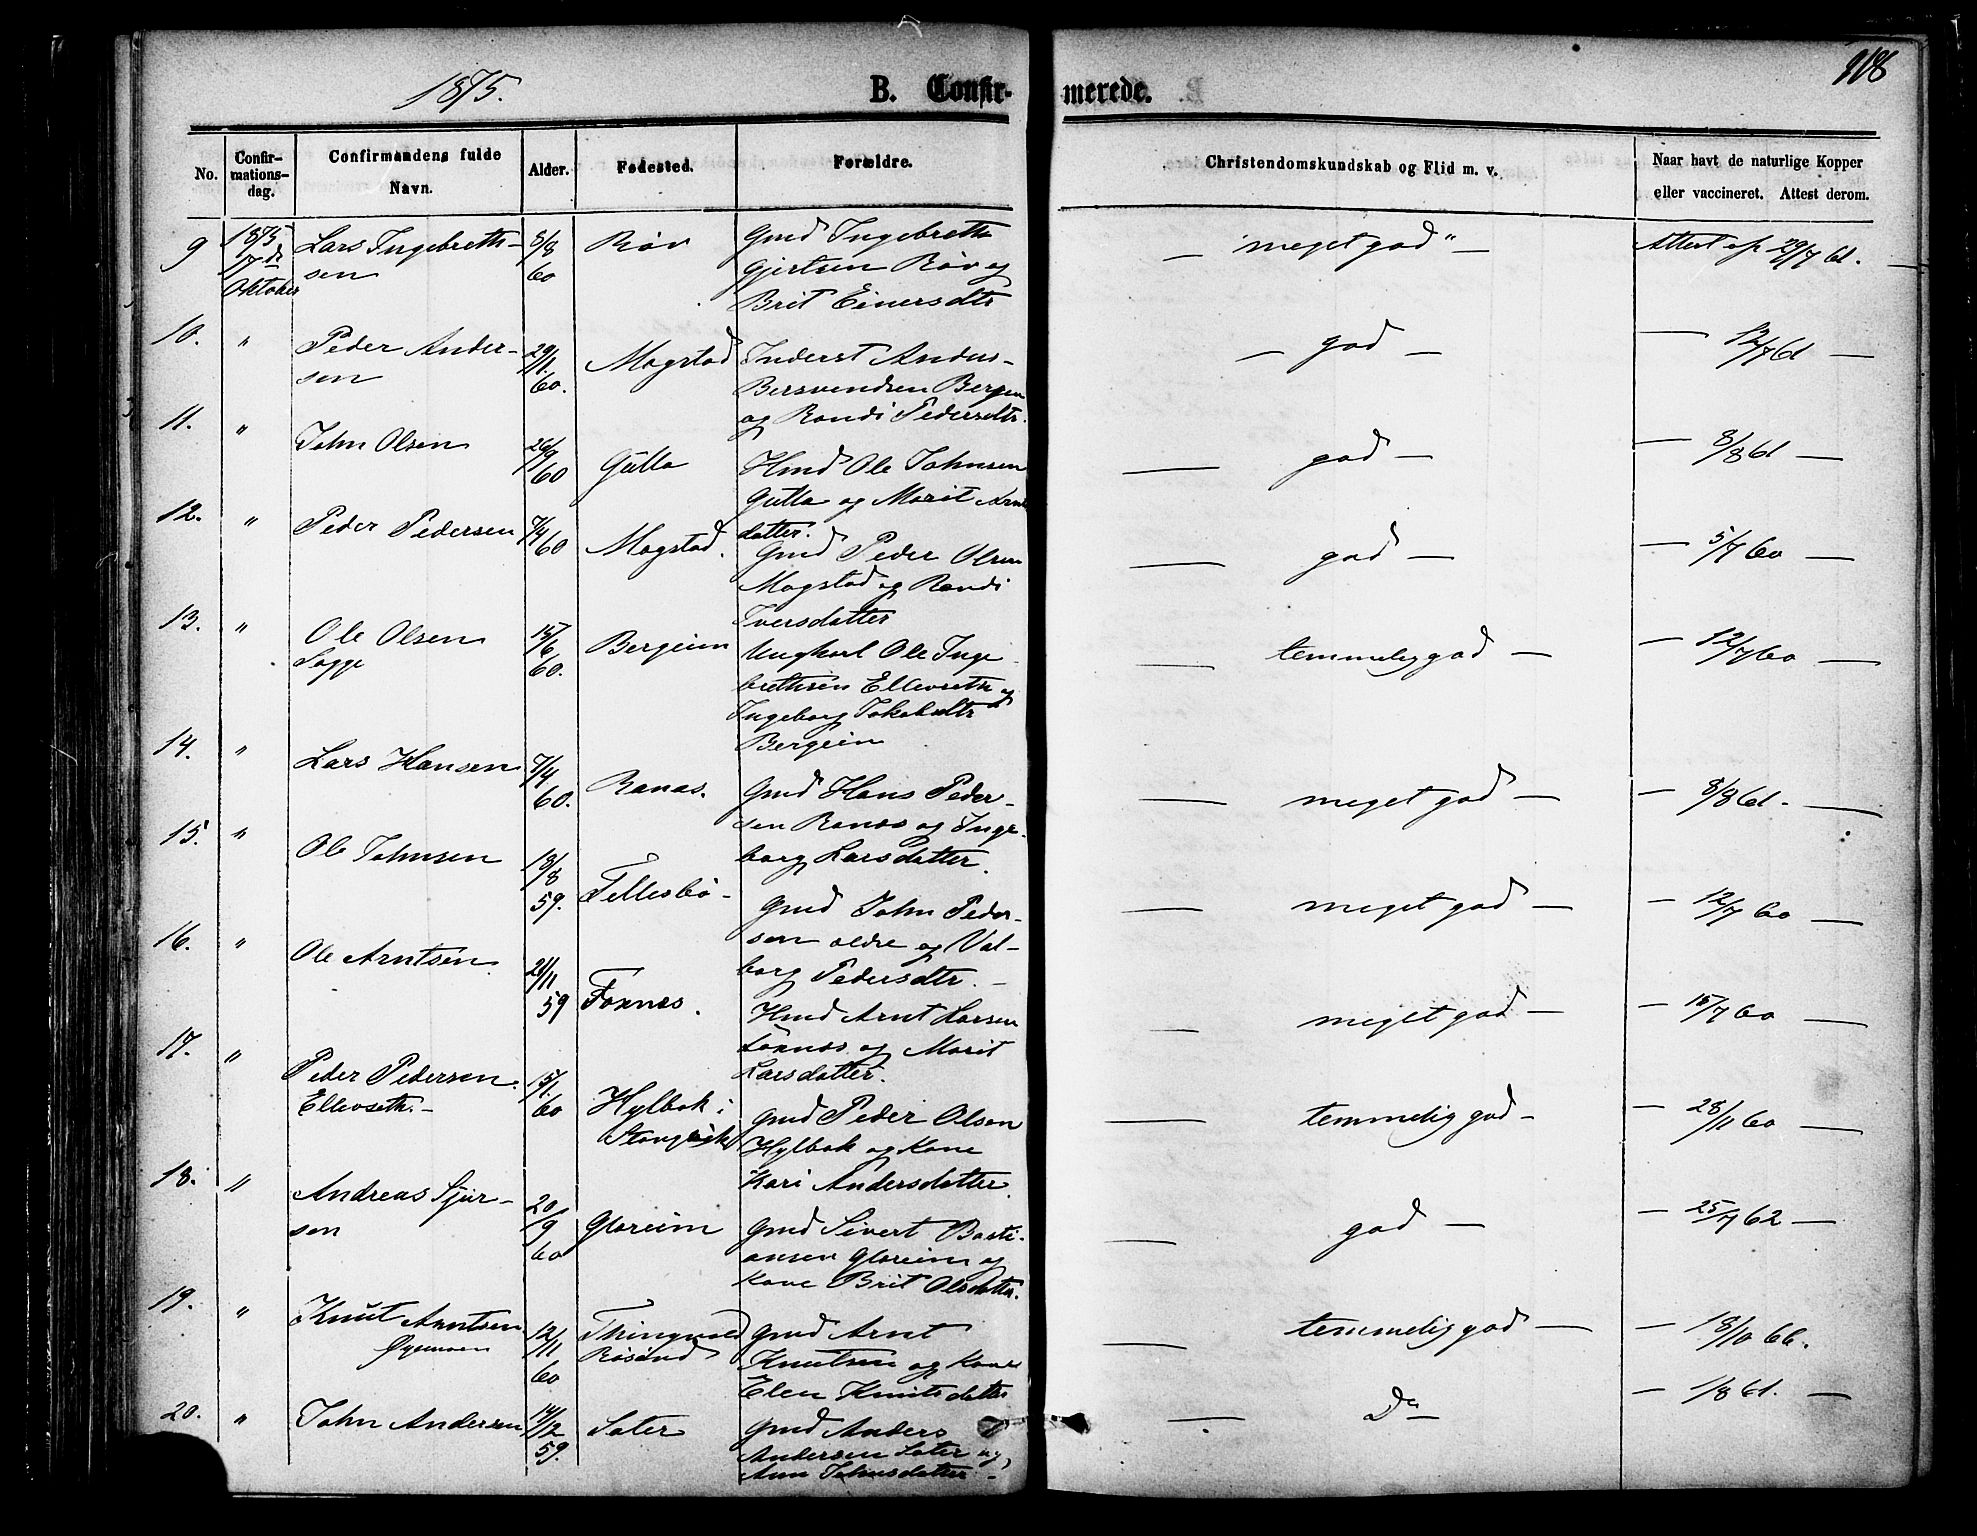 118
1875.
B. Confir-
merede.
No.
Confir-
mations-
dag.
Confirmandens fulde
Navn.
Alder.
Fødested.
Forældre.
Christendomskundskab og Flid m. v.
Naar havt de naturlige Kopper
eller vaccineret. Attest derom.
9 1875 17de Oktober
Lars Ingebreth-
sen
8/8 60
Røv
Gmd Ingebreth
Gjertsen Røv og
Brit Einersdtr
— meget god" —
Attest af 29/7 61. —
10. "
Peder Ander-
sen
29/1 60.
Mogstad
Inderst Anders
Bersvendsen Bergem
og Randi Pedersdtr.
— god —
— 12/7 61 —
11. "
John Olsen
26/9 60
Gulla
Hmd Ole Johnsen
Gulla og Marit Arnts
datter.
— god —
— 8/8 61 —
12. "
Peder Pedersen
7/4 60
Mogstad.
Gmd Peder Olsen
Mogstad og Randi
Iversdatter
— god —
— 5/7 60 —
13. "
Ole Olsen
Sogge
15/6 60.
Bergeim
Ungkarl Ole Inge-
brethsen Ellevseth og
Ingeborg Jakobsdtr
Bergeim
— temmelig god —
— 12/7 60 —
14. "
Lars Hansen
7/4 60.
Ranæs.
Gmd Hans Peder-
sen Ranæs og Inge-
borg Larsdatter.
— meget god —
— 8/8 61. —
15. "
Ole Johnsen
18/8 59.
Tellesbø -
Gmd John Peder-
sen ældre og Val-
borg Pedersdtr. —
— meget god —
— 12/7 60 —
16. "
Ole Arntsen
21/11 59
Foxnes.
Hmd Arnt Larsen
Foxnæs og Marit
Larsdatter.
— meget god —
— 15/7 60 —
17. "
Peder Pedersen
Ellevseth. —
15/1. 60
Hylbak i
Stangvik
Gmd Peder Olsen
Hylbak og Kone
Kari Andersdatter.
— temmelig god —
— 28/11 60 —
18. "
Andreas Sjur-
sen
20/9 60
Glæreim
Gmd Sivert Basti-
ansen Glæreim og
Kone Brit Olsdatter.
— god —
— 25/7 62 —
19. "
Knut Arntsen
Øyemoen
12/11 60
Thingvold
Røsund
Gmd Arnt
Knutsen og Kone
Elen Knutsdatter
— temmelig god —
— 18/10 66.
20. "
John Andersen
14/12 59.
Sæter
Gmd Anders
Andersen Sæter og
Ann Johnsdatter —
— Do —
— 1/8 61. —